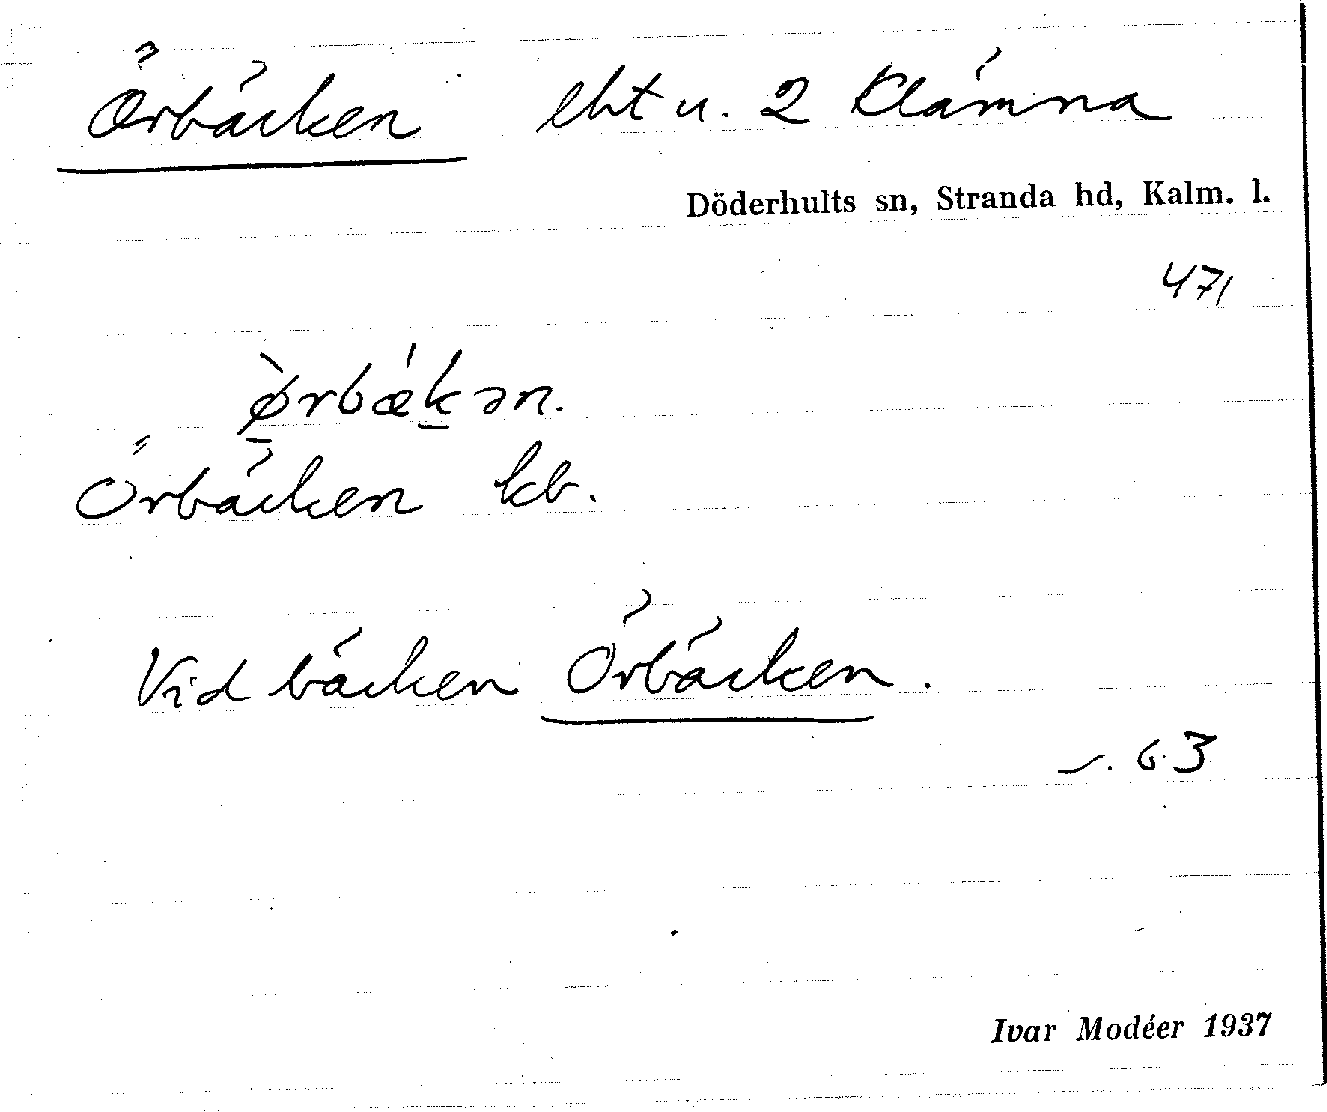 Örbäcken lht u. 2 Klämna
Döderhults sn, Stranda hd, Kalm. l.
471
ø̀rbæ̀kən.
Örbäcken kb.
Vid bäcken Örbäcken.
s. 63
Ivar Modéer 1937